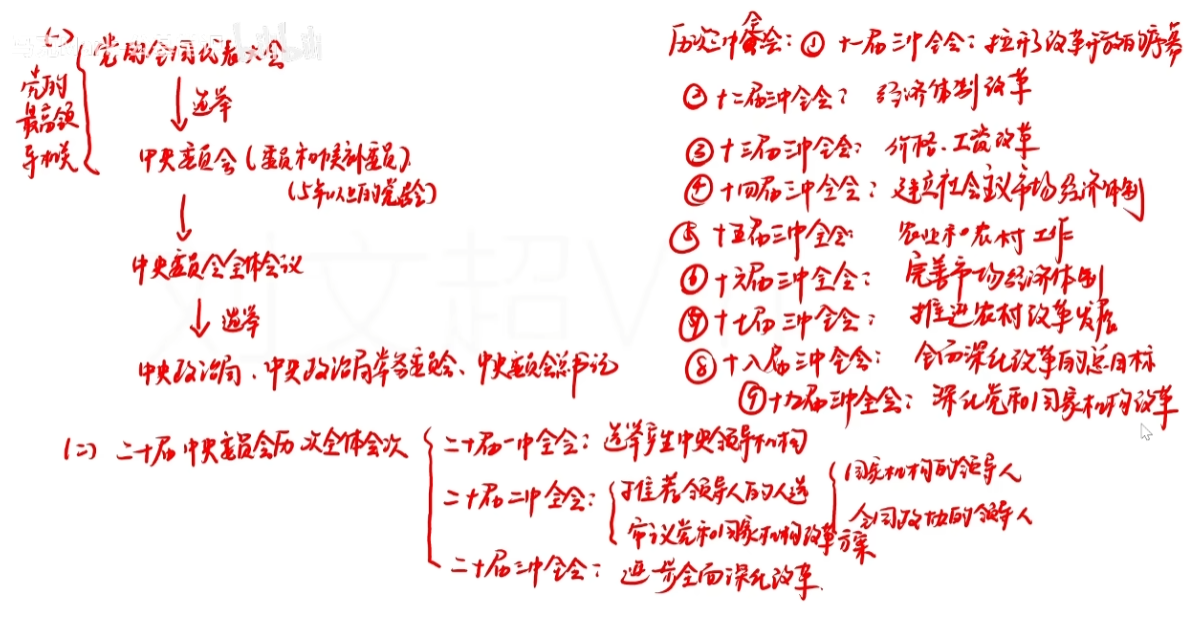 (一)
党的最高领导机关
党的全国代表大会
↓选举
中央委员会(委员和候补委员)
(5年以上的党龄)
↓
中央委员会全体会议
↓选举
中央政治局、中央政治局常务委员会、中央委员会总书记
历次三中全会:① 十一届三中全会:拉开了改革开放的序幕
② 十二届三中全会: 经济体制改革
③ 十三届三中全会: 价格、工资改革
④ 十四届三中全会: 建立社会主义市场经济体制
⑤ 十五届三中全会 农业和农村工作
⑥ 十六届三中全会: 完善市场经济体制
十七届三中全会: 推进农村改革发展
⑧ 十八届三中全会: 全面深化改革的总目标
⑨ 十九届三中全会: 深化党和国家机构改革
(二) 二十届中央委员会历次全体会次
二十届一中全会: 选举产生中央领导机构
二十届二中全会: 推荐领导人的人选
国家机构的领导人
全国政协的领导人
审议党和国家机构改革方案
二十届三中全会: 进步全面深化改革.